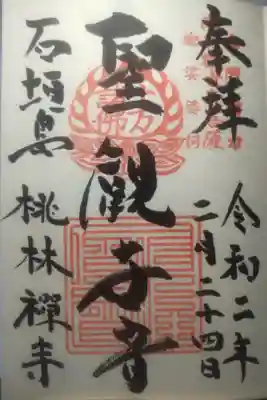 奉拝
令和二年
二月二十四日
聖観世音
石垣島
桃林禅寺